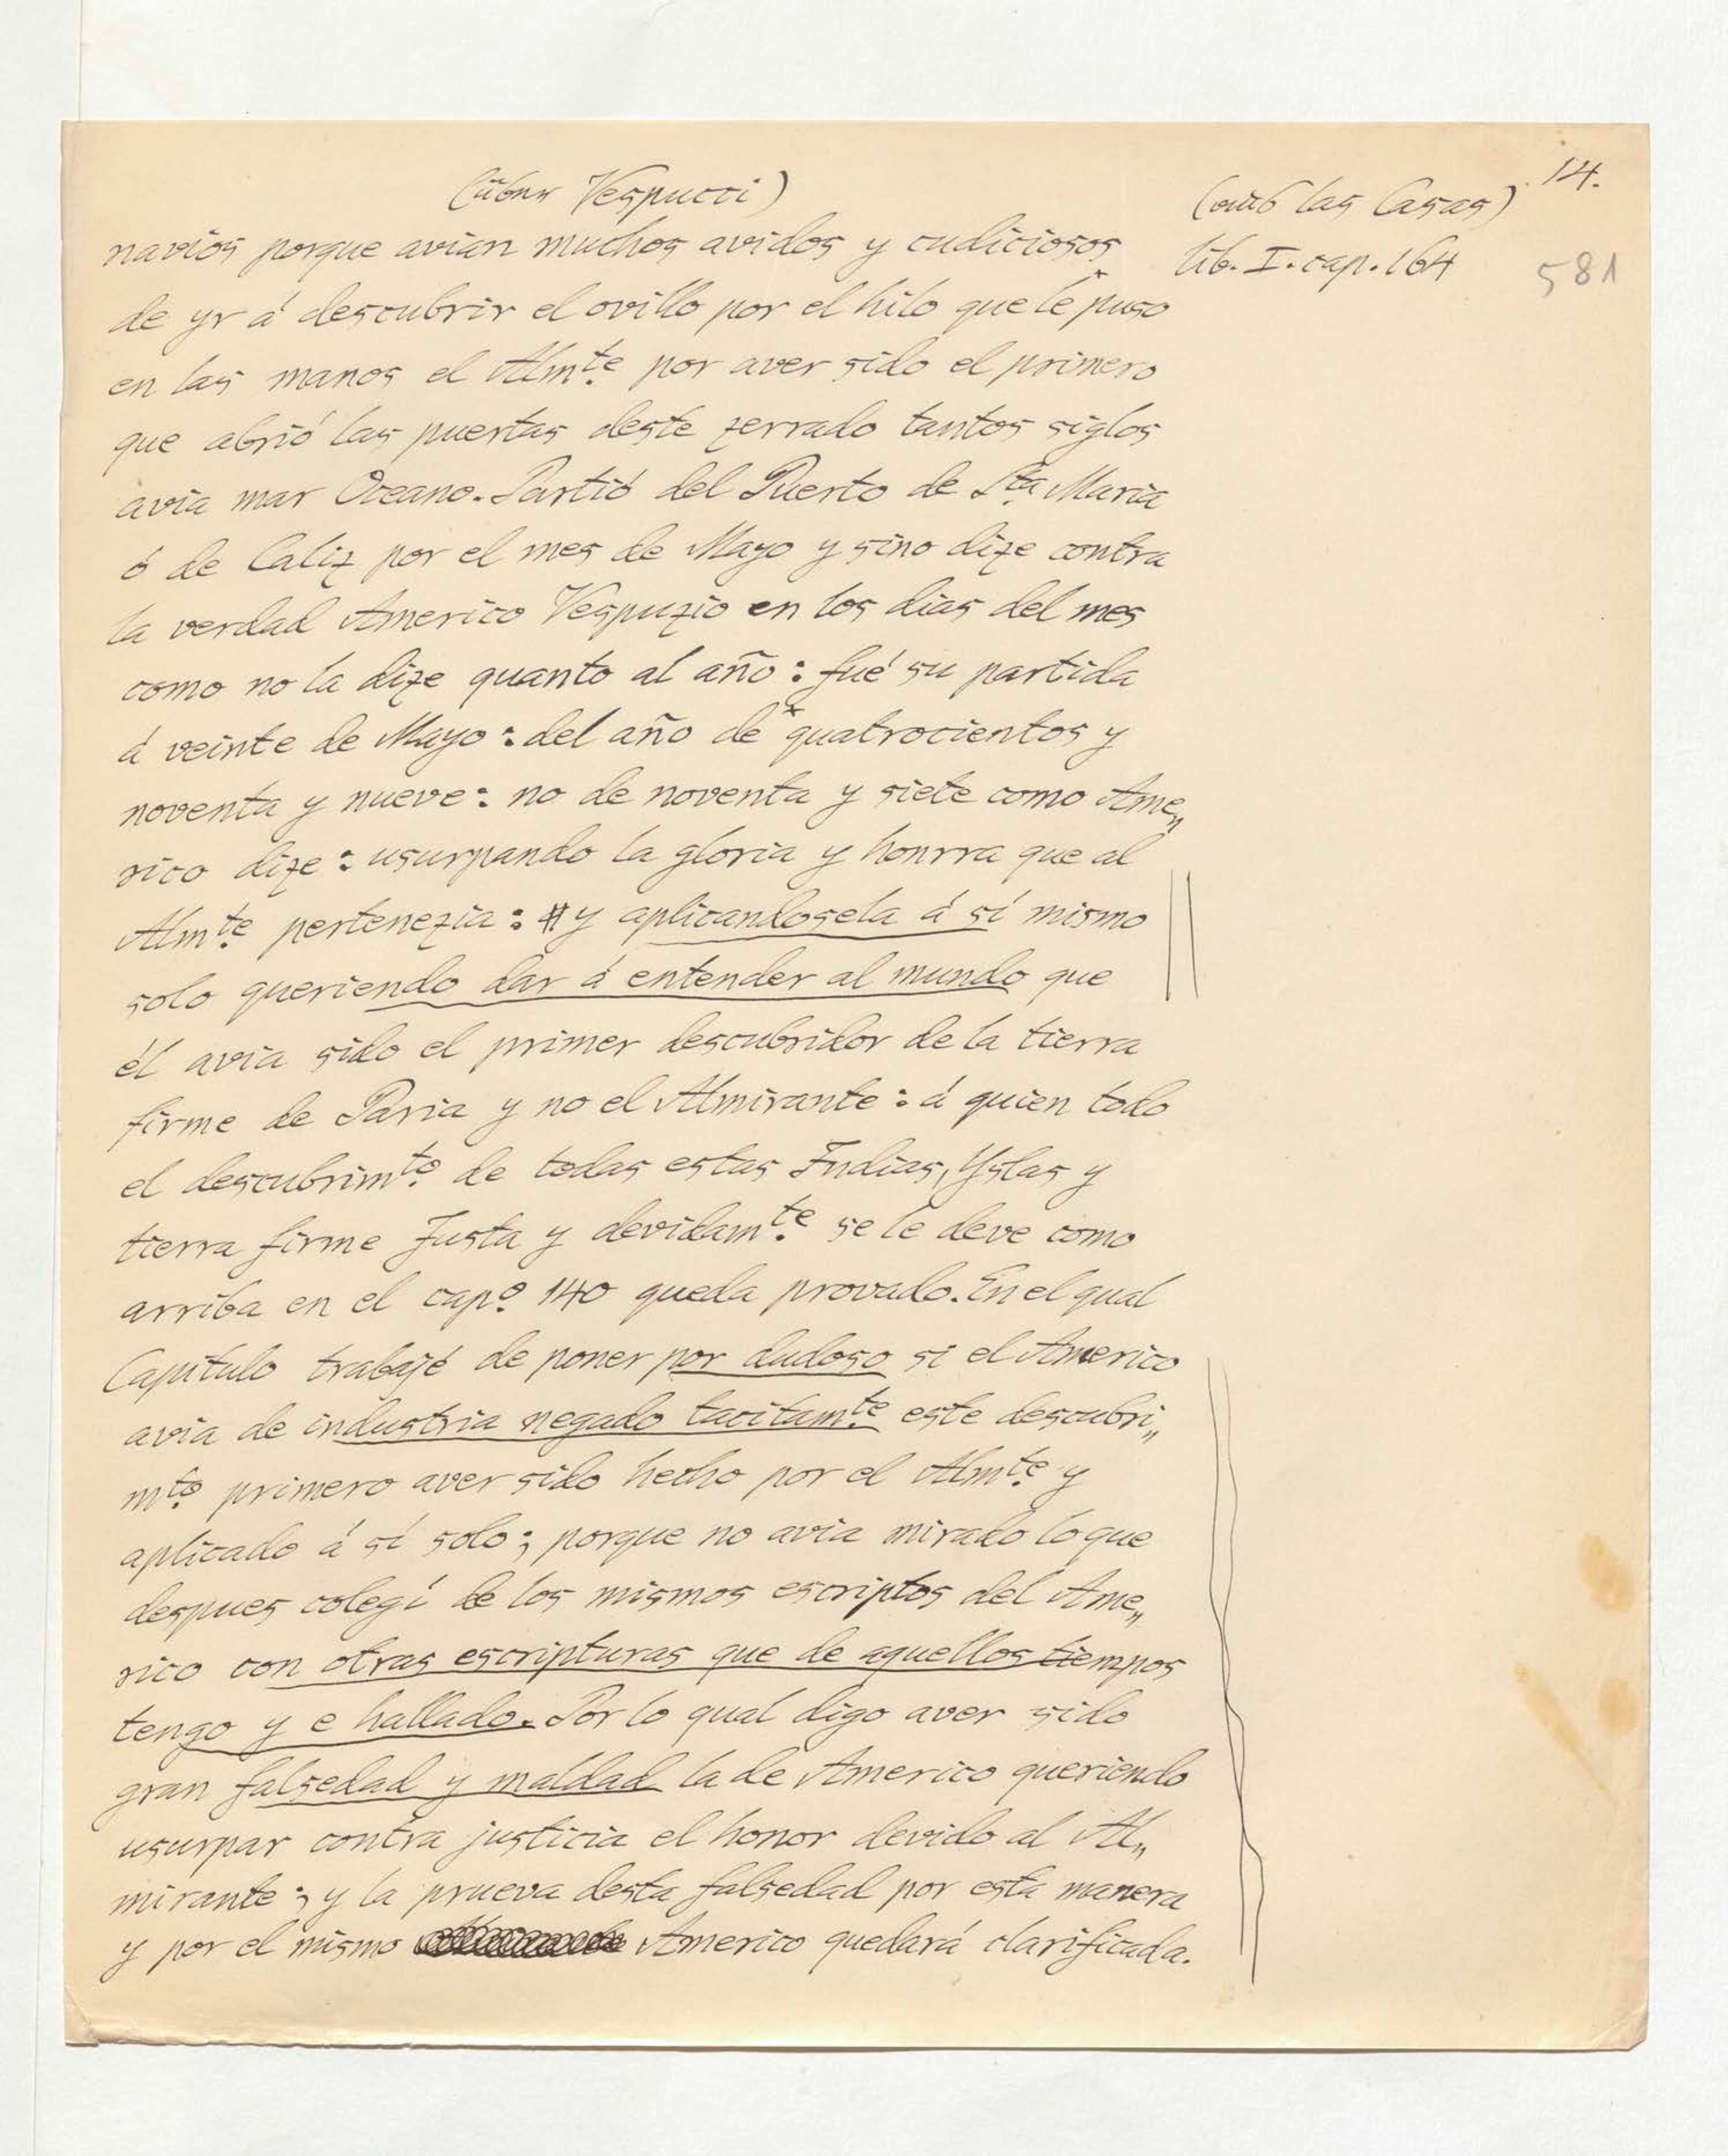 (über Vespucci)
(aus las Casas) 14.
lib. I. cap. 164 581
navios porque avian muchos avidos y cudiciosos
de yr á descubrir el ovillo por el hilo que le puso
en las manos el Almte. por aver sido el primero
que abrió las puertas deste zerrado tantos siglos
avia mar Oceano. Partió del Puerto de Sta. Maria
ó de Caliz por el mes de Mayo y sino dize contra
la verdad Americo Vespuzio en los dias del mes
como no la dize quanto al año: fué su partida
á veinte de Mayo: del año de * quatrocientos y
noventa y nueve: no de noventa y siete como Ame„
rico dize: usurpando la gloria y honrra que al
Almte. pertenezia: # y aplicandosela á sí mismo
solo queriendo dar á entender al mundo que
él avia sido el primer descubridor de la tierra
firme de Paria y no el Almirante: á quien todo
el descubrimto. de todas estas Indias, Yslas y
tierra firme Justa y devidamte. se le deve como
arriba en el capo. 140 queda provado. En el qual
Capítulo trabajé de poner por dudoso si el Americo
avia de industria negado tacitamte. este descubri„
mto. primero aver sido hecho por el Almte. y
aplicado á sí solo; porque no avia mirado lo que
despues colegí de los mismos escriptos del Ame„
rico con otras escripturas que de aquellos tiempos
tengo y e hallado. Por lo qual digo aver sido
gran falsedad y maldad la de Americo queriendo
usurpar contra justicia el honor devido al Al„
mirante; y la prueva desta falsedad por esta manera
y por el mismo Americo quedará clarificada.